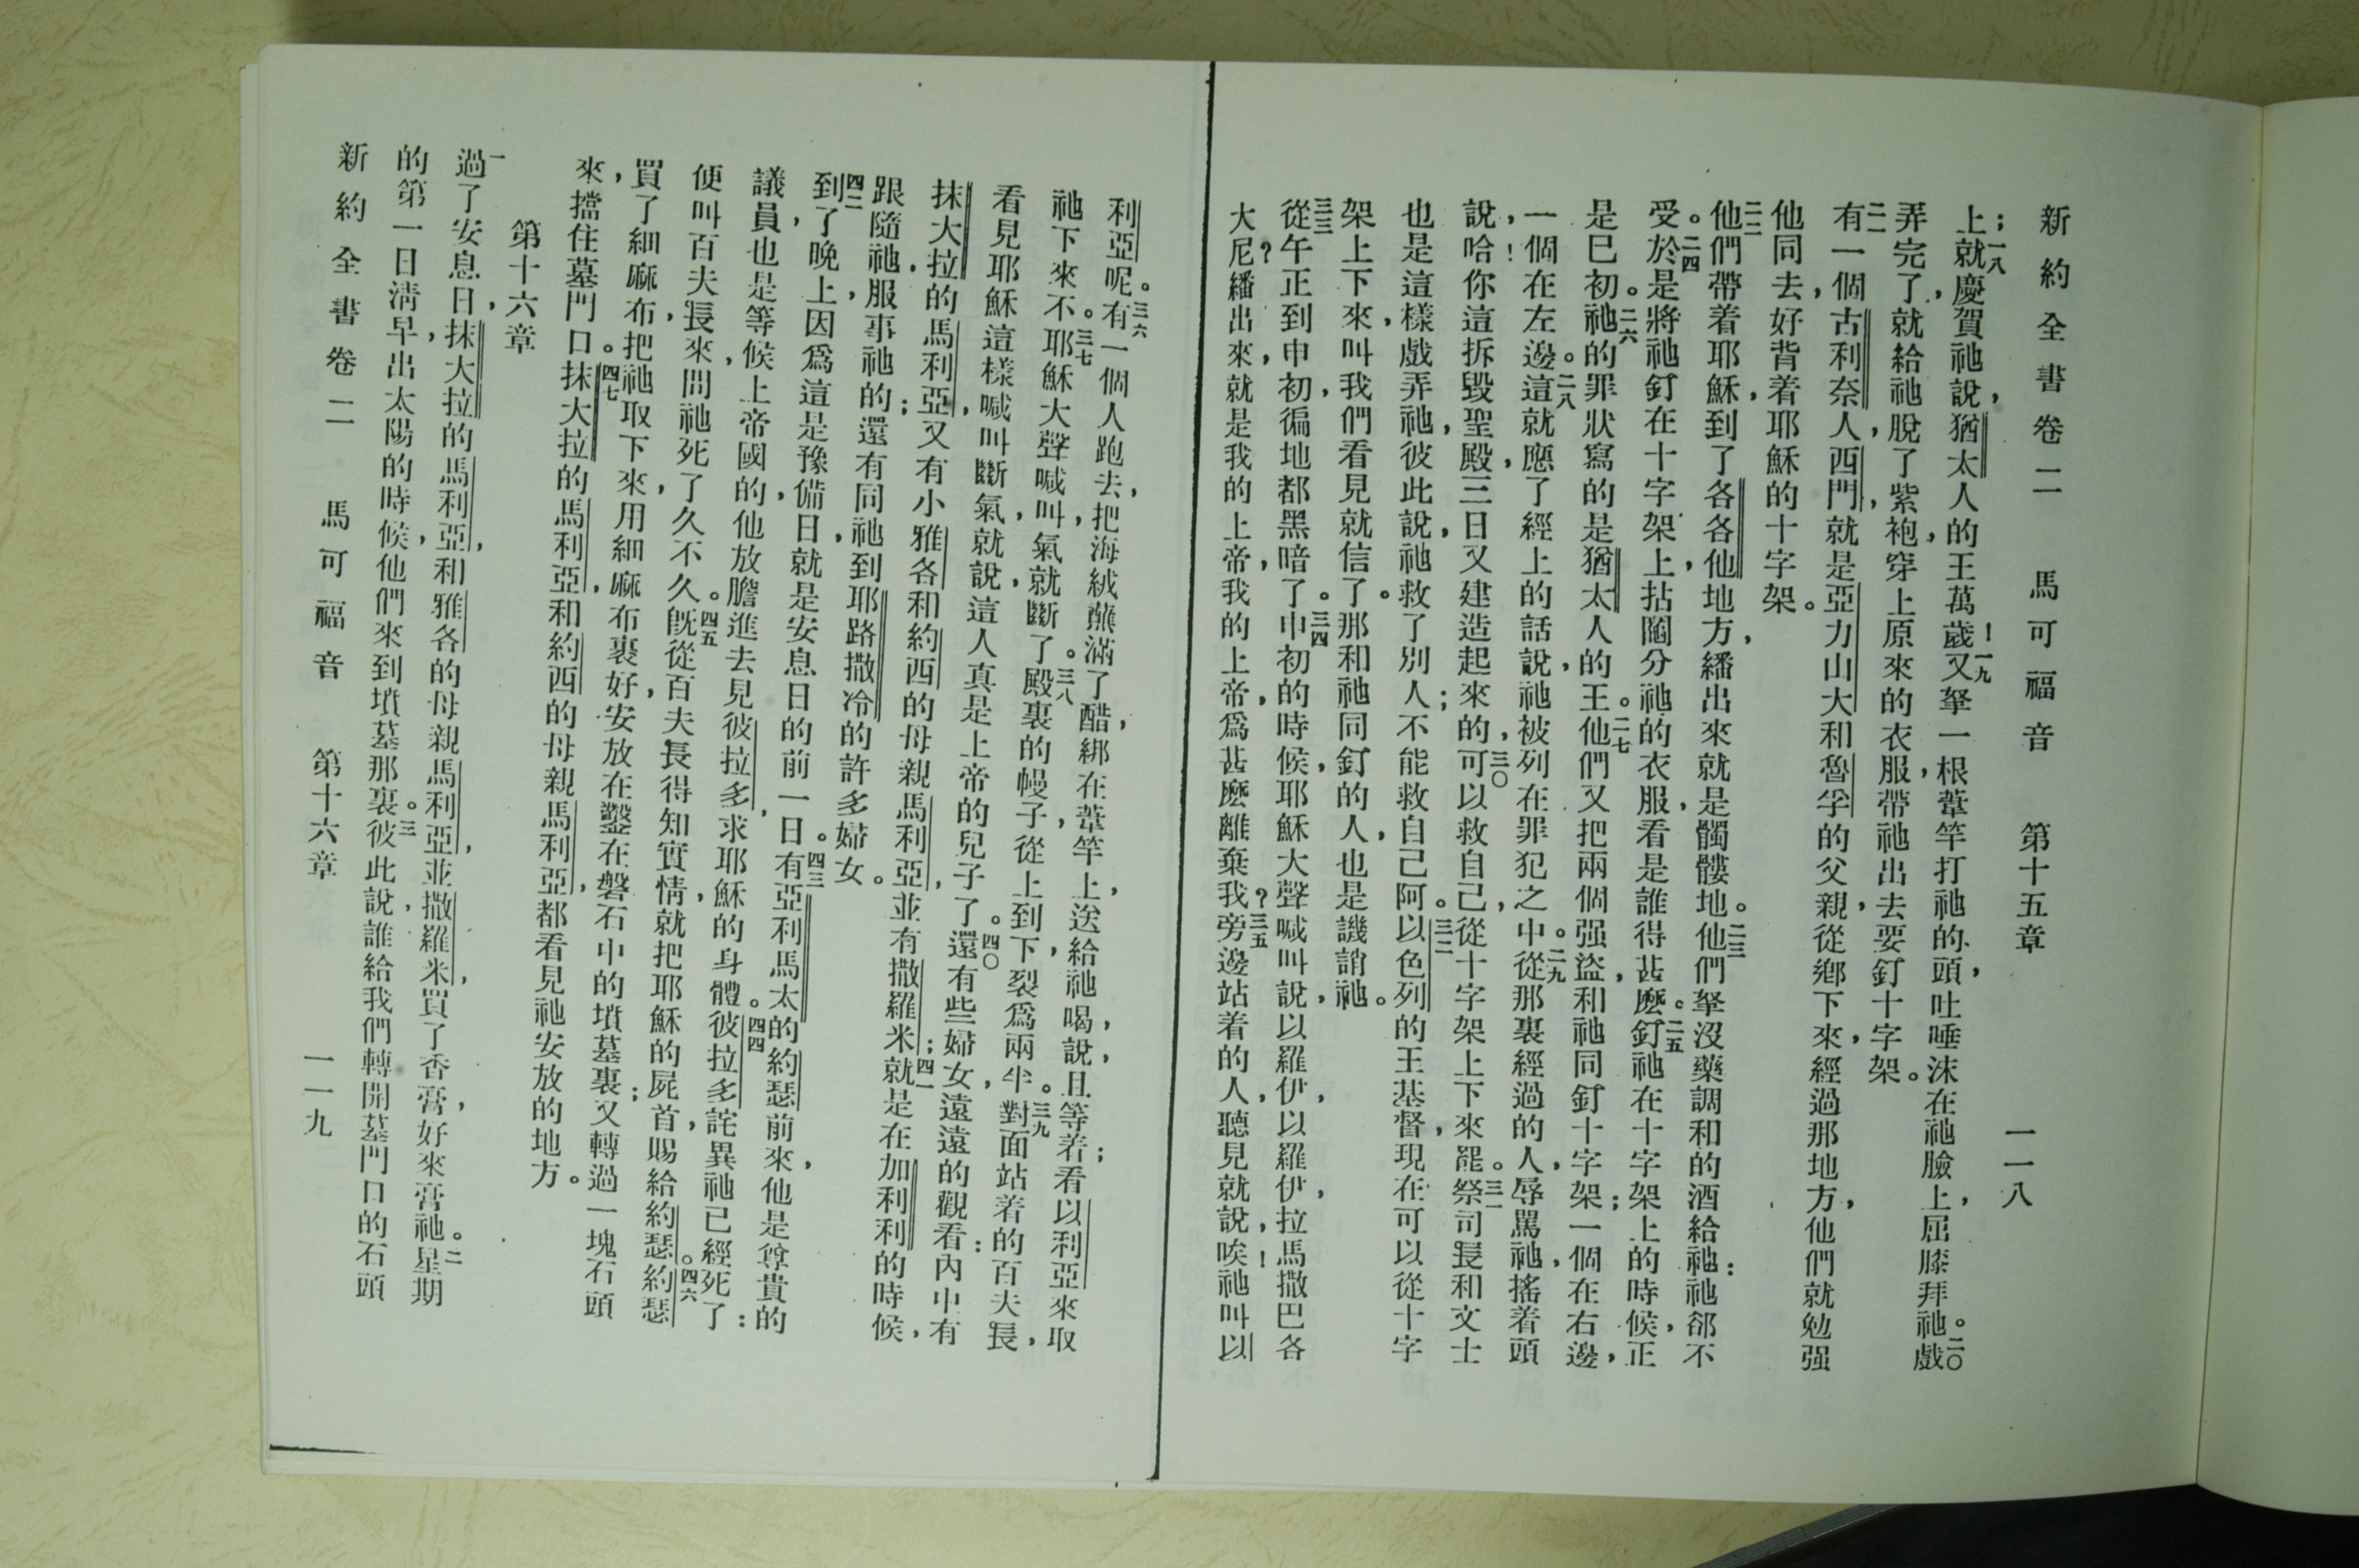 新約全書卷二 馬可福音 第十五章 一一八
上；一八就慶賀祂說，猶太人的王萬歲！一九又拏一根葦竿打祂的頭，吐唾沫在祂臉上，屈膝拜祂。二〇戲
弄完了，就給祂脫了紫袍，穿上原來的衣服，帶祂出去要釘十字架。
二一有一個古利奈人，西門，就是亞力山大和魯孚的父親，從鄉下來，經過那地方，他們就勉强
他同去，好背着耶穌的十字架。
二二他們帶着耶穌，到了各各他地方，繙出來就是髑髏地。二三他們拏沒藥調和的酒給祂：祂郤不
受。二四於是將祂釘在十字架上，拈鬮分祂的衣服，看是誰得甚麽。二五釘祂在十字架上的時候，正
是巳初。二六祂的罪狀寫的是猶太人的王。二七他們又把兩個强盜，和祂同釘十字架；一個在右邊，
一個在左邊。二八這就應了經上的話說，祂被列在罪犯之中。二九從那裏經過的人，辱罵祂，搖着頭
說，哈！你這拆毀聖殿，三日又建造起來的，三〇可以救自己，從十字架上下來罷。三一祭司長和文士
也是這樣戲弄祂，彼此說，祂救了別人；不能救自己阿。三二以色列的王基督，現在可以從十字
架上下來，叫我們看見就信了。那和祂同釘的人，也是譏誚祂。
三三從午正到申初，徧地都黑暗了。三四申初的時候，耶穌大聲喊叫說，以羅伊，以羅伊，拉馬撒巴各
大尼？繙出來，就是我的上帝，我的上帝，爲甚麽離棄我？三五旁邊站着的人，聽見就說，唉！祂叫以
利亞呢。三六有一個人跑去，把海絨蘸滿了醋，綁在葦竿上，送給祂喝，說，且等着；看以利亞來取
祂下來不。三七耶穌大聲喊叫，氣就斷了。三八殿裏的幔子，從上到下，裂爲兩半。三九對面站着的百夫長，
看見耶穌這樣喊叫斷氣，就說，這人真是上帝的兒子了。四〇還有些婦女，遠遠的觀看：內中有
抹大拉的馬利亞，又有小雅各和約西的母親馬利亞，並有撒羅米；四一就是在加利利的時候，
跟隨祂，服事祂的；還有同祂到耶路撒冷的許多婦女。
四二到了晚上，因爲這是豫備日，就是安息日的前一日。四三有亞利馬太的約瑟前來，他是尊貴的
議員，也是等候上帝國的，他放膽進去見彼拉多，求耶穌的身體。四四彼拉多詫異祂已經死了：
便叫百夫長來，問祂死了久不久。四五旣從百夫長得知實情，就把耶穌的屍首，賜給約瑟。四六約瑟
買了細麻布，把祂取下來，用細麻布裹好，安放在鑿在磐石中的墳墓裏；又轉過一塊石頭
來，擋住墓門口。四七抹大拉的馬利亞，和約西的母親馬利亞，都看見祂安放的地方。
第十六章
一過了安息日，抹大拉的馬利亞，和雅各的母親馬利亞，並撒羅米，買了香膏，好來膏祂。二星期
的第一日清早，出太陽的時候，他們來到墳墓那裏。三彼此說，誰給我們轉開墓門口的石頭
新約全書卷二 馬可福音 第十六章 一一九